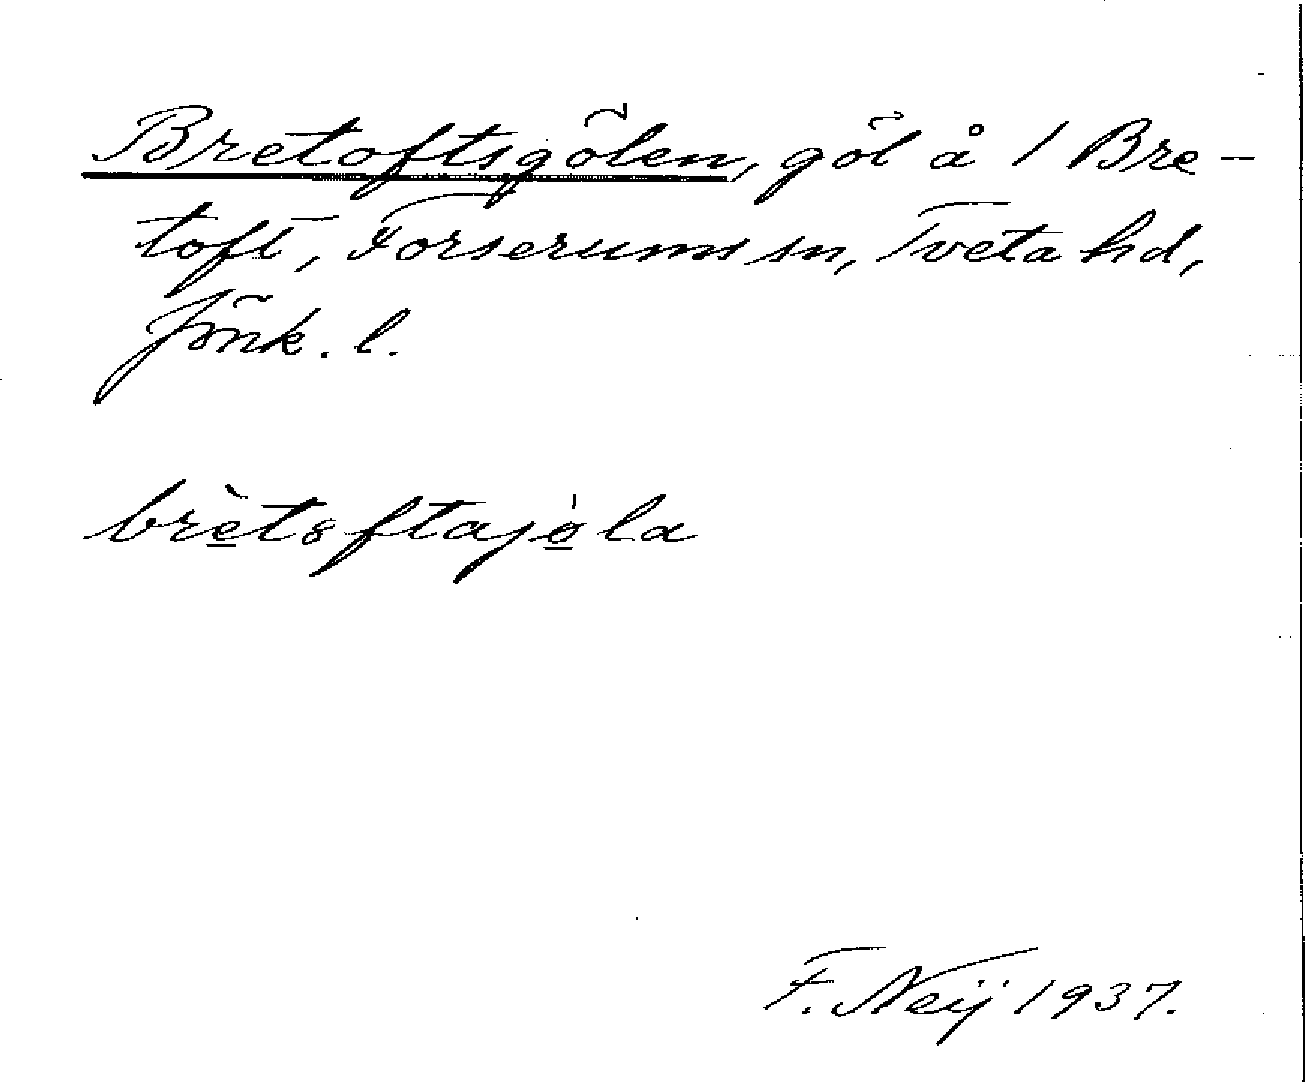 Bretoftsgölen, göl å 1 Bre-
toft, Forserums sn, Tveta hd,
Jönk. l.
brètsftajø̀la
F. Neij 1937.